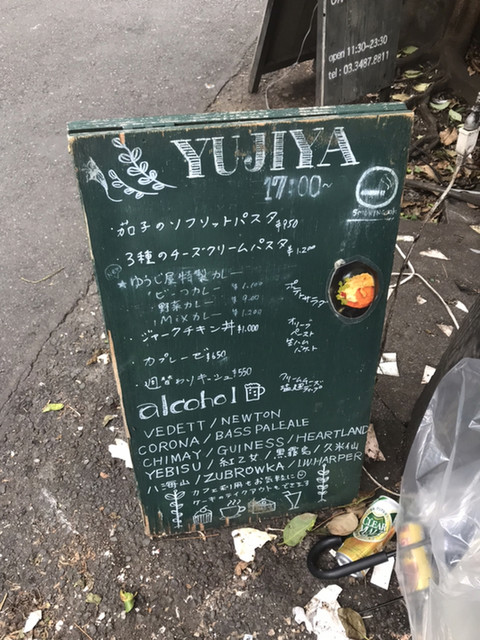 open 11:30~23:30
tel : 03.3487.8811
YUJIYA
17:00~
茄子のソフリットパスタ ¥950
SMOKING
3種のチーズクリームパスタ ¥1.200
★ゆうじ屋特製カレー
ビーフカレー ¥1.100
野菜カレー ¥900
MiXカレー ¥1.200
ポテトサラダ
・ジャークチキン丼 ¥1.000
オリーブ
ペースト
生ハム
・カプレーゼ ¥650
・週替わりキッシュ ¥550
クリームチーズ
alcohol
VEDETT / NEWTON
CORONA / BASS PALEALE
CHIMAY / GUINESS / HEARTLAND
YEBISU / 紅乙女 / 黒霧島 / 久米仙
八海山 / ZUBROWKA / I.W.HARPER
カフェ利用もお気軽に
ケーキのテイクアウトもできます
CLEAR